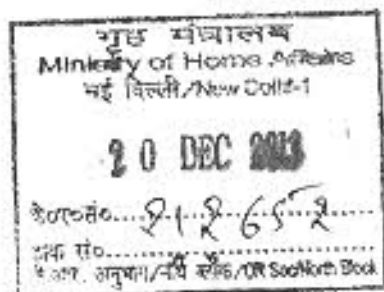 गृह मंत्रालय
Ministry of Home Affairs
नई दिल्ली/New Delhi-1
20 DEC 2013
के०र०सं०......212652
डाक सं०
के.आर. अनुभाग/नॉर्थ ब्लॉक/CR Sec/North Block